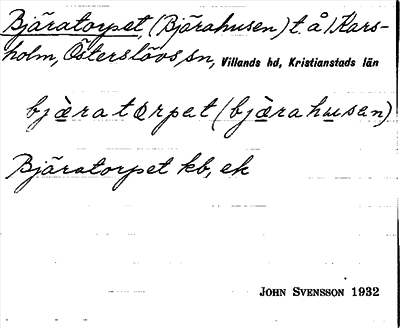 Bjäratorpet, (Bjärahusen) t. å 1 Kars-
holm, Österslövs sn, Villands hd, Kristianstads län
bjæratorpet (bjærahusen)
Bjäratorpet kb, ek
JOHN SVENSSON 1932